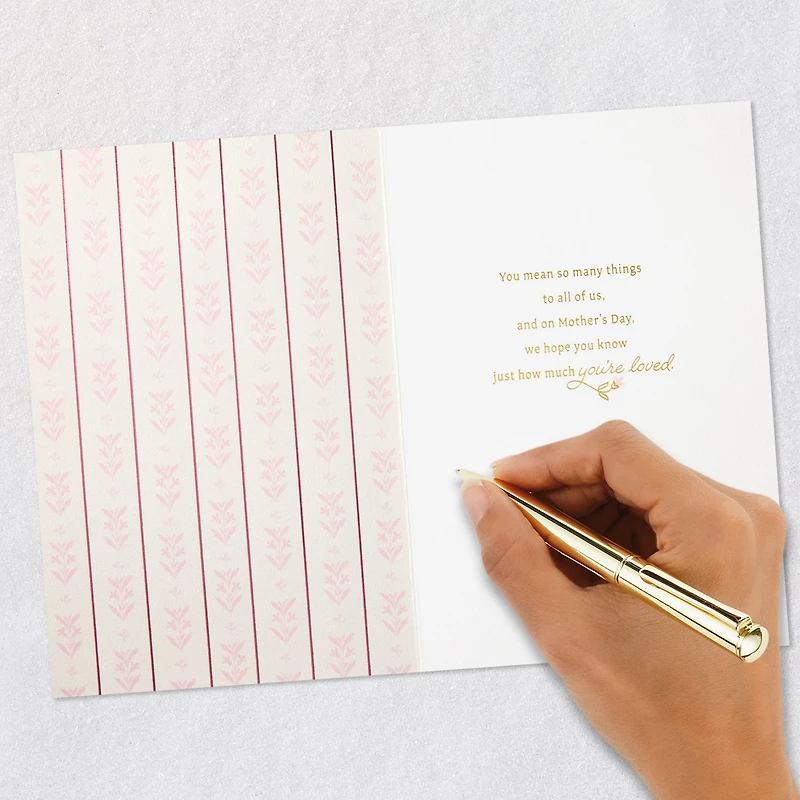 You mean so many things
to all of us,
and on Mother's Day,
we hope you know
just how much you're loved.